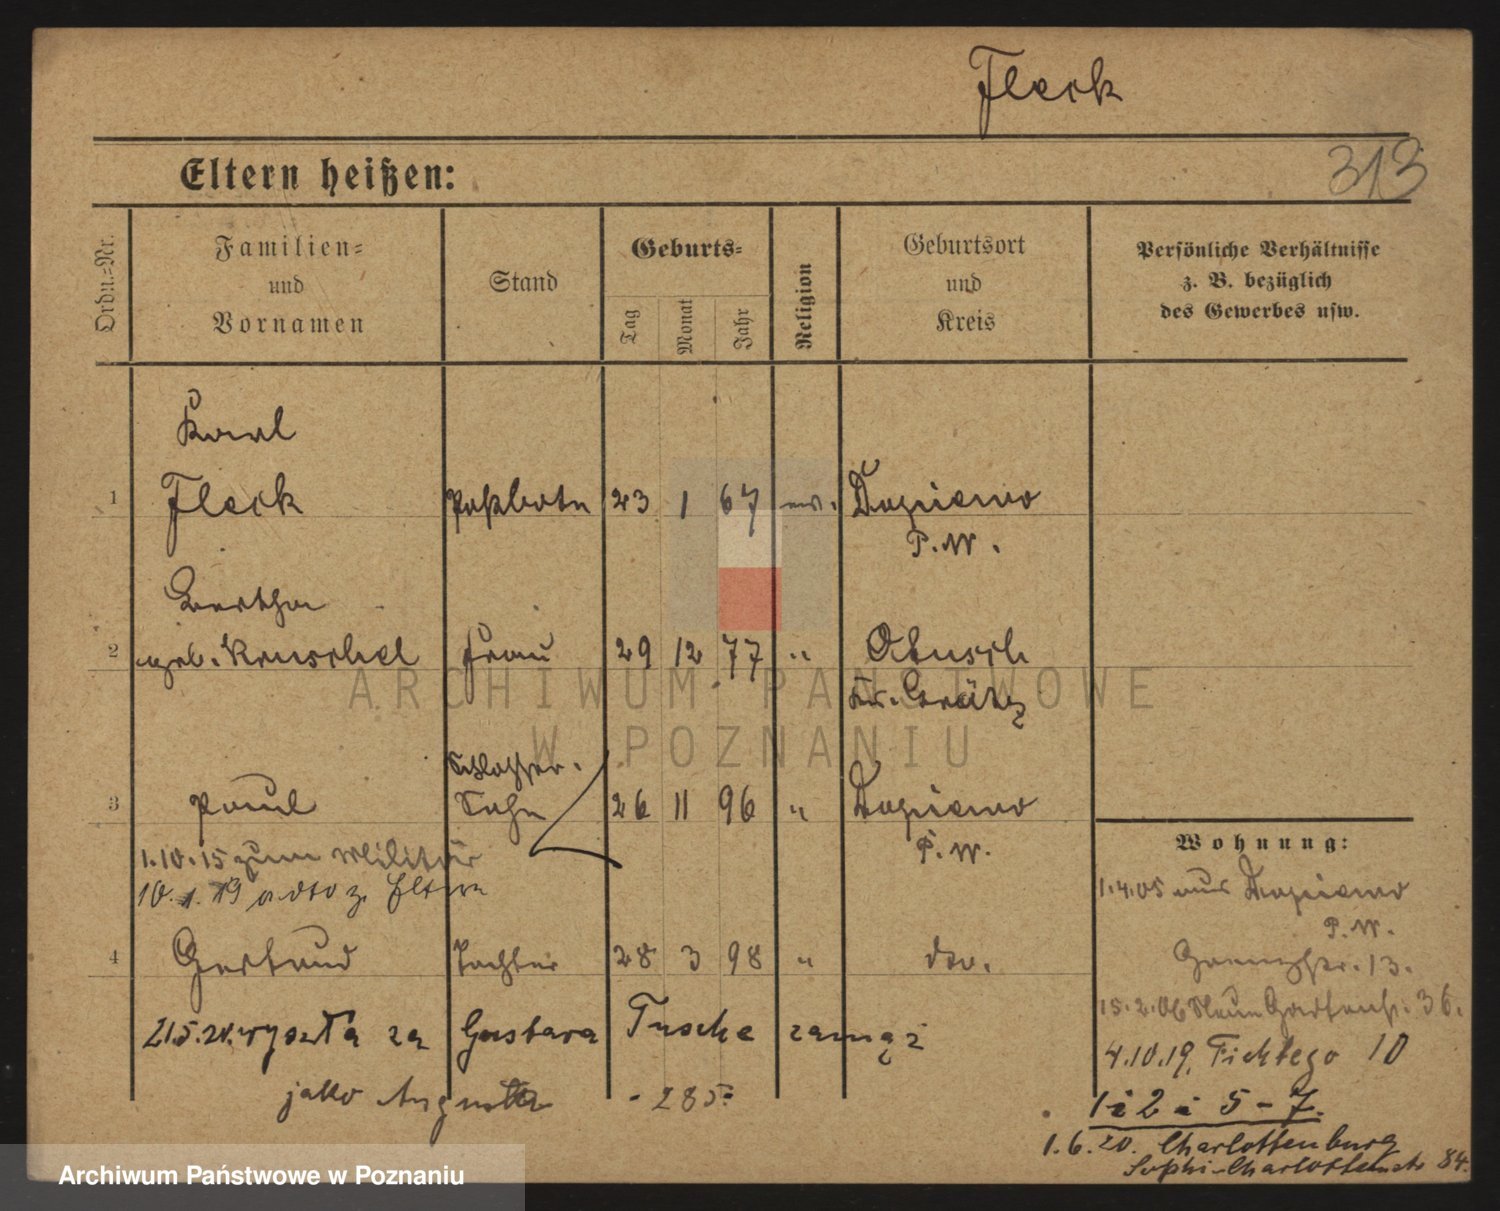 Fleck
313
Eltern heißen:
Ordn.-Nr.
Familien-
und
Vornamen
Stand
Geburts-
Tag
Monat
Jahr
Religion
Geburtsort
und
Kreis
Persönliche Verhältnisse
z. B. bezüglich
des Gewerbes usw.
Karl
1 Fleck Postbote 23 1 67 ev. Dopiewo
P.W.
Bertha
2 geb. Kruschel Frau 29 12 77 " Obusch
Kr. Grätz
Schlosser.
3 Paul Sohn 26 11 96 " Dopiewo
P.W.
1.10.15 zum Militär
10.1.19 z. Eltern
4 Gertrud Tochter 28 3 98 " dto.
21.5.20. wyszła za Gustava Tusche zamąż
jako Augusta - 285-
Wohnung:
1.4.05 aus Dopiewo
P.W.
13.
15.2.06 Neue Gartenstr. 36.
4.10.19. Fichtego 10
1 i 2 i 5-7.
1.6.20. Charlottenburg
Sophi-Charlottenstr 84.
ARCHIWUM PAŃSTWOWE
W POZNANIU
Archiwum Państwowe w Poznaniu